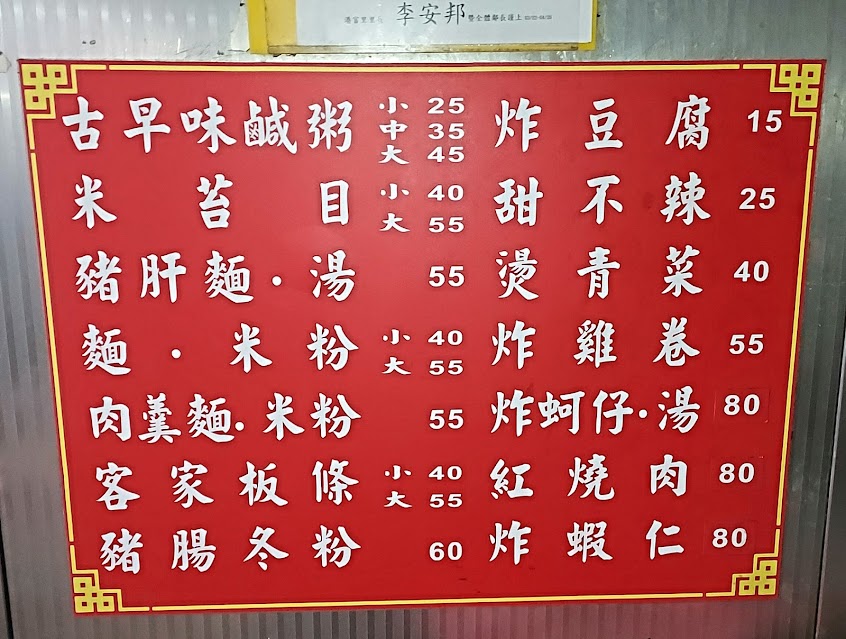 湯富里里長 李安邦 暨全體鄰長謹上
古早味鹹粥 小 25 中 35 大 45
米苔目 小 40 大 55
豬肝麵・湯 55
麵・米粉 小 40 大 55
肉羹麵・米粉 55
客家板條 小 40 大 55
豬腸冬粉 60
炸豆腐 15
甜不辣 25
燙青菜 40
炸雞卷 55
炸蚵仔・湯 80
紅燒肉 80
炸蝦仁 80